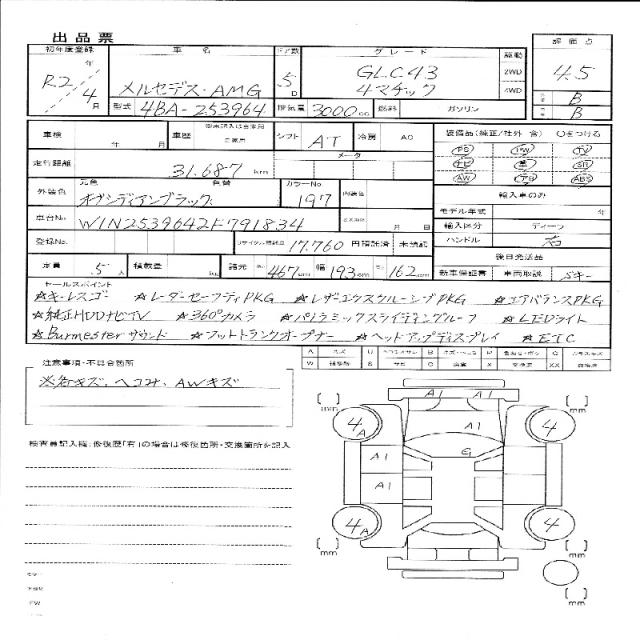 出品票
初年度登録 車名 ドア数 グレード 駆動 評価点
R2年 メルセデス・AMG 5D GLC43 2WD 4.5
4月 4マチック 4WD
型式 4BA-253964 排気量 3000cc 燃料 ガソリン B
B
車検 年 月 車歴 シフト AT 冷房 AC 装備品(純正/社外 含) ○をつける
走行距離 31,687 km メータ
PS PW TV
SR
AW ABS
外装色 元色 色替 カラーNo 内装色
オブシディアンブラック 197
輸入車のみ
モデル年式 年
車台No. W1N2539642F791834 月 日
輸入区分 ディーラ
登録No. リサイクル預託金 17,760 円 預託済 未預託
ハンドル 右
後日発送品
定員 5人 積載量 諸元 長さ 467cm 幅 193cm 高さ 162cm
新車保証書 車両取説 Sキー
セールスポイント
☆キーレスゴー ☆レーダーセーフティPKG ☆レザーエクスクルーシブPKG ☆エアバランスPKG
☆純正HDDナビTV ☆360°カメラ ☆パノラミックスライディングルーフ ☆LEDライト
☆Burmesterサウンド ☆フットトランクオープナー ☆ヘッドアップディスプレイ ☆ETC
注意事項・不具合箇所
※各キズ、ヘコみ、AWキズ
A キズ U B W C
W S X XX
検査員記入欄:修復歴「有」の場合は修復箇所・交換箇所を記入
A1 A1
[ ]mm [ ]mm
4A A1 4
G
A1
A1
4A 4
[ ]mm [ ]mm
[ ]mm